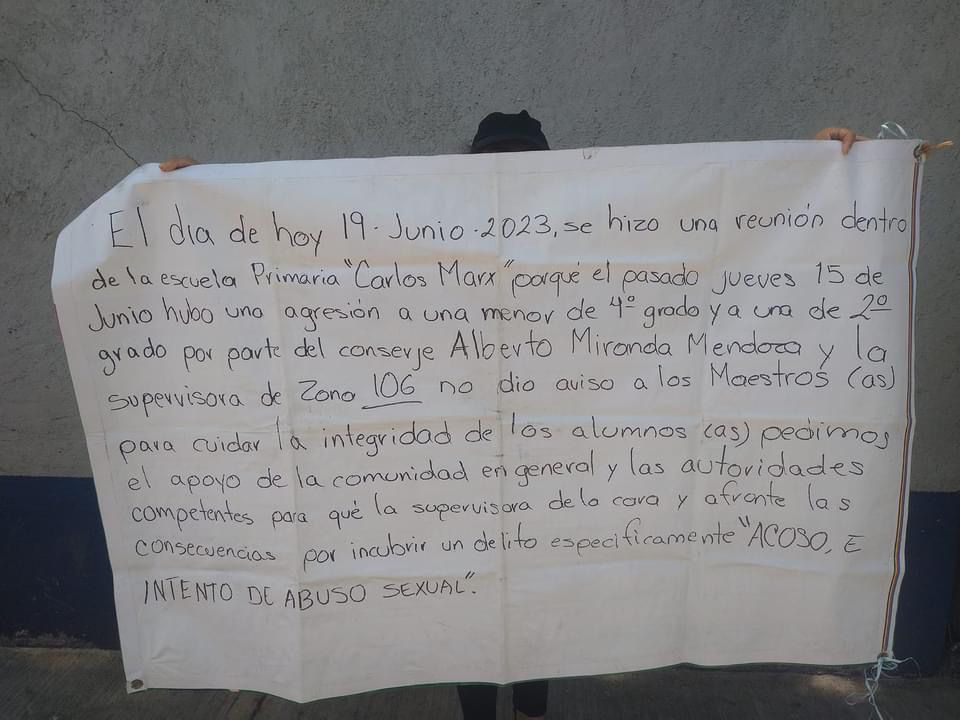 El dia de hoy 19. Junio .2023, se hizo una reunión dentro
de la escuela Primaria "Carlos Marx" porqué el pasado jueves 15 de
Junio hubo una agresión a una menor de 4º grado y a una de 2º
grado por parte del conserje Alberto Miranda Mendoza y la
supervisora de Zona 106 no dio aviso a los Maestros (as)
para cuidar la integridad de los alumnos (as) pedimos
el apoyo de la comunidad en general y las autoridades
competentes para qué la supervisora de la cara y afronte las
consecuencias por incubrir un delito especificamente "ACOSO, E
INTENTO DE ABUSO SEXUAL".